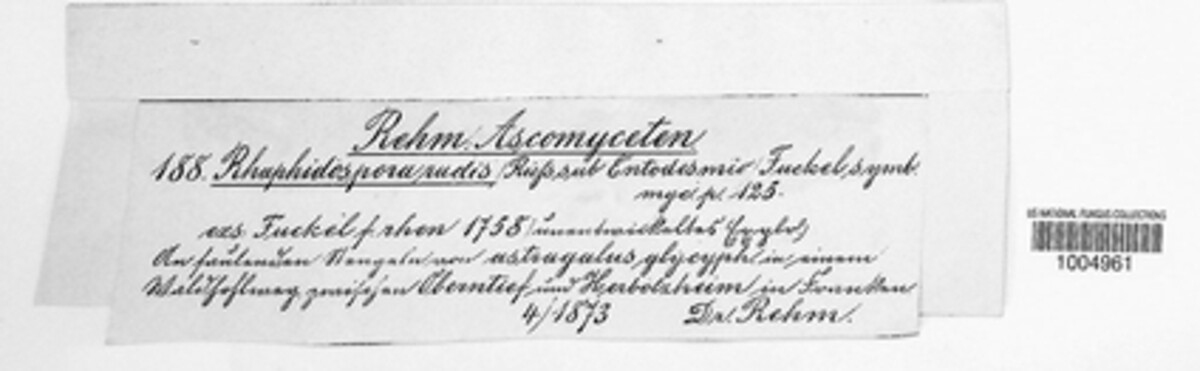 Rehm. Ascomyceten
188. Rhaphidospora rudis (Riess sub Entodesmio) Fuckel, symb.
myc. p. 125.
exs. Fuckel f. rhen 1758 (unentwickeltes Exyplr)
An faulenden Stengeln von astragalus glycyph in einem
Waldhohlweg zwischen Oberntief und Herbolzheim in Franken
4/1873 Dr. Rehm.
US NATIONAL FUNGUS COLLECTIONS
1004961